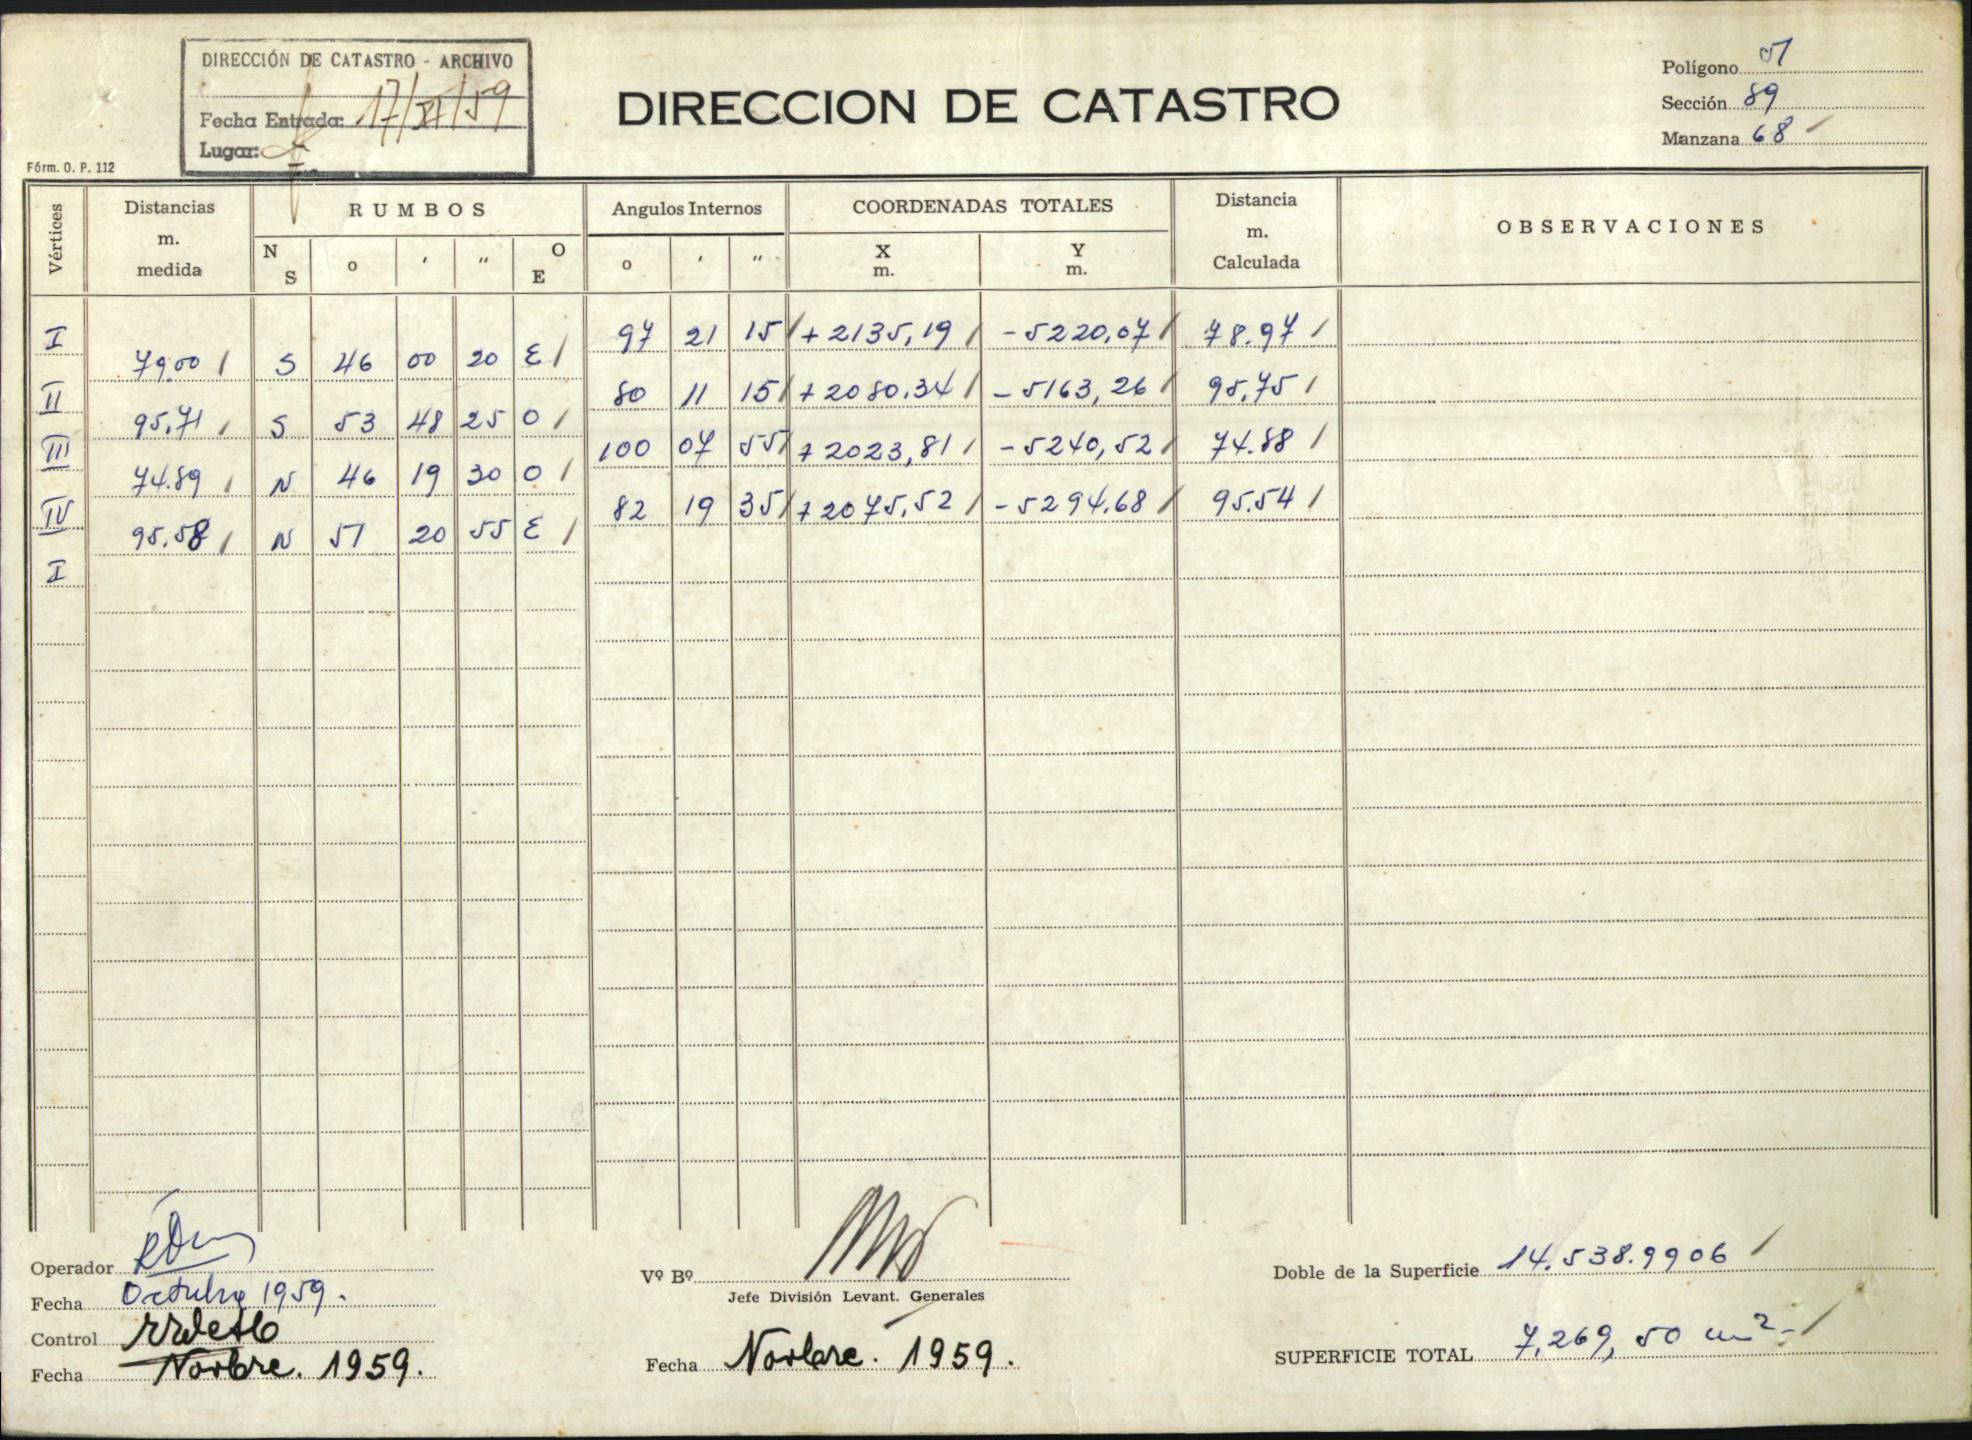 DIRECCIÓN DE CATASTRO - ARCHIVO
Fecha Entrada: 17/XI/59
Lugar:
DIRECCION DE CATASTRO
Polígono 51
Sección 89
Manzana 68
Fórm. O. P. 112
Vértices Distancias m. medida RUMBOS Angulos Internos COORDENADAS TOTALES Distancia m. Calculada OBSERVACIONES
N S o ' " O E o ' " X m. Y m.
I 97 21 15 + 2135,19 - 5220,07 78.97
79.00 S 46 00 20 E
II 80 11 15 + 2080.34 - 5163,26 95,75
95,71 S 53 48 25 O
III 100 07 55 + 2023,81 - 5240,52 74.88
74.89 N 46 19 30 O
IV 82 19 35 + 2075,52 - 5294.68 95.54
95.58 N 51 20 55 E
I
Operador
Fecha Octubre 1959.
Control
Fecha Novbre. 1959.
Vº Bº
Jefe División Levant. Generales
Fecha Novbre. 1959.
Doble de la Superficie 14.538.9906
SUPERFICIE TOTAL 7.269,50 m²-